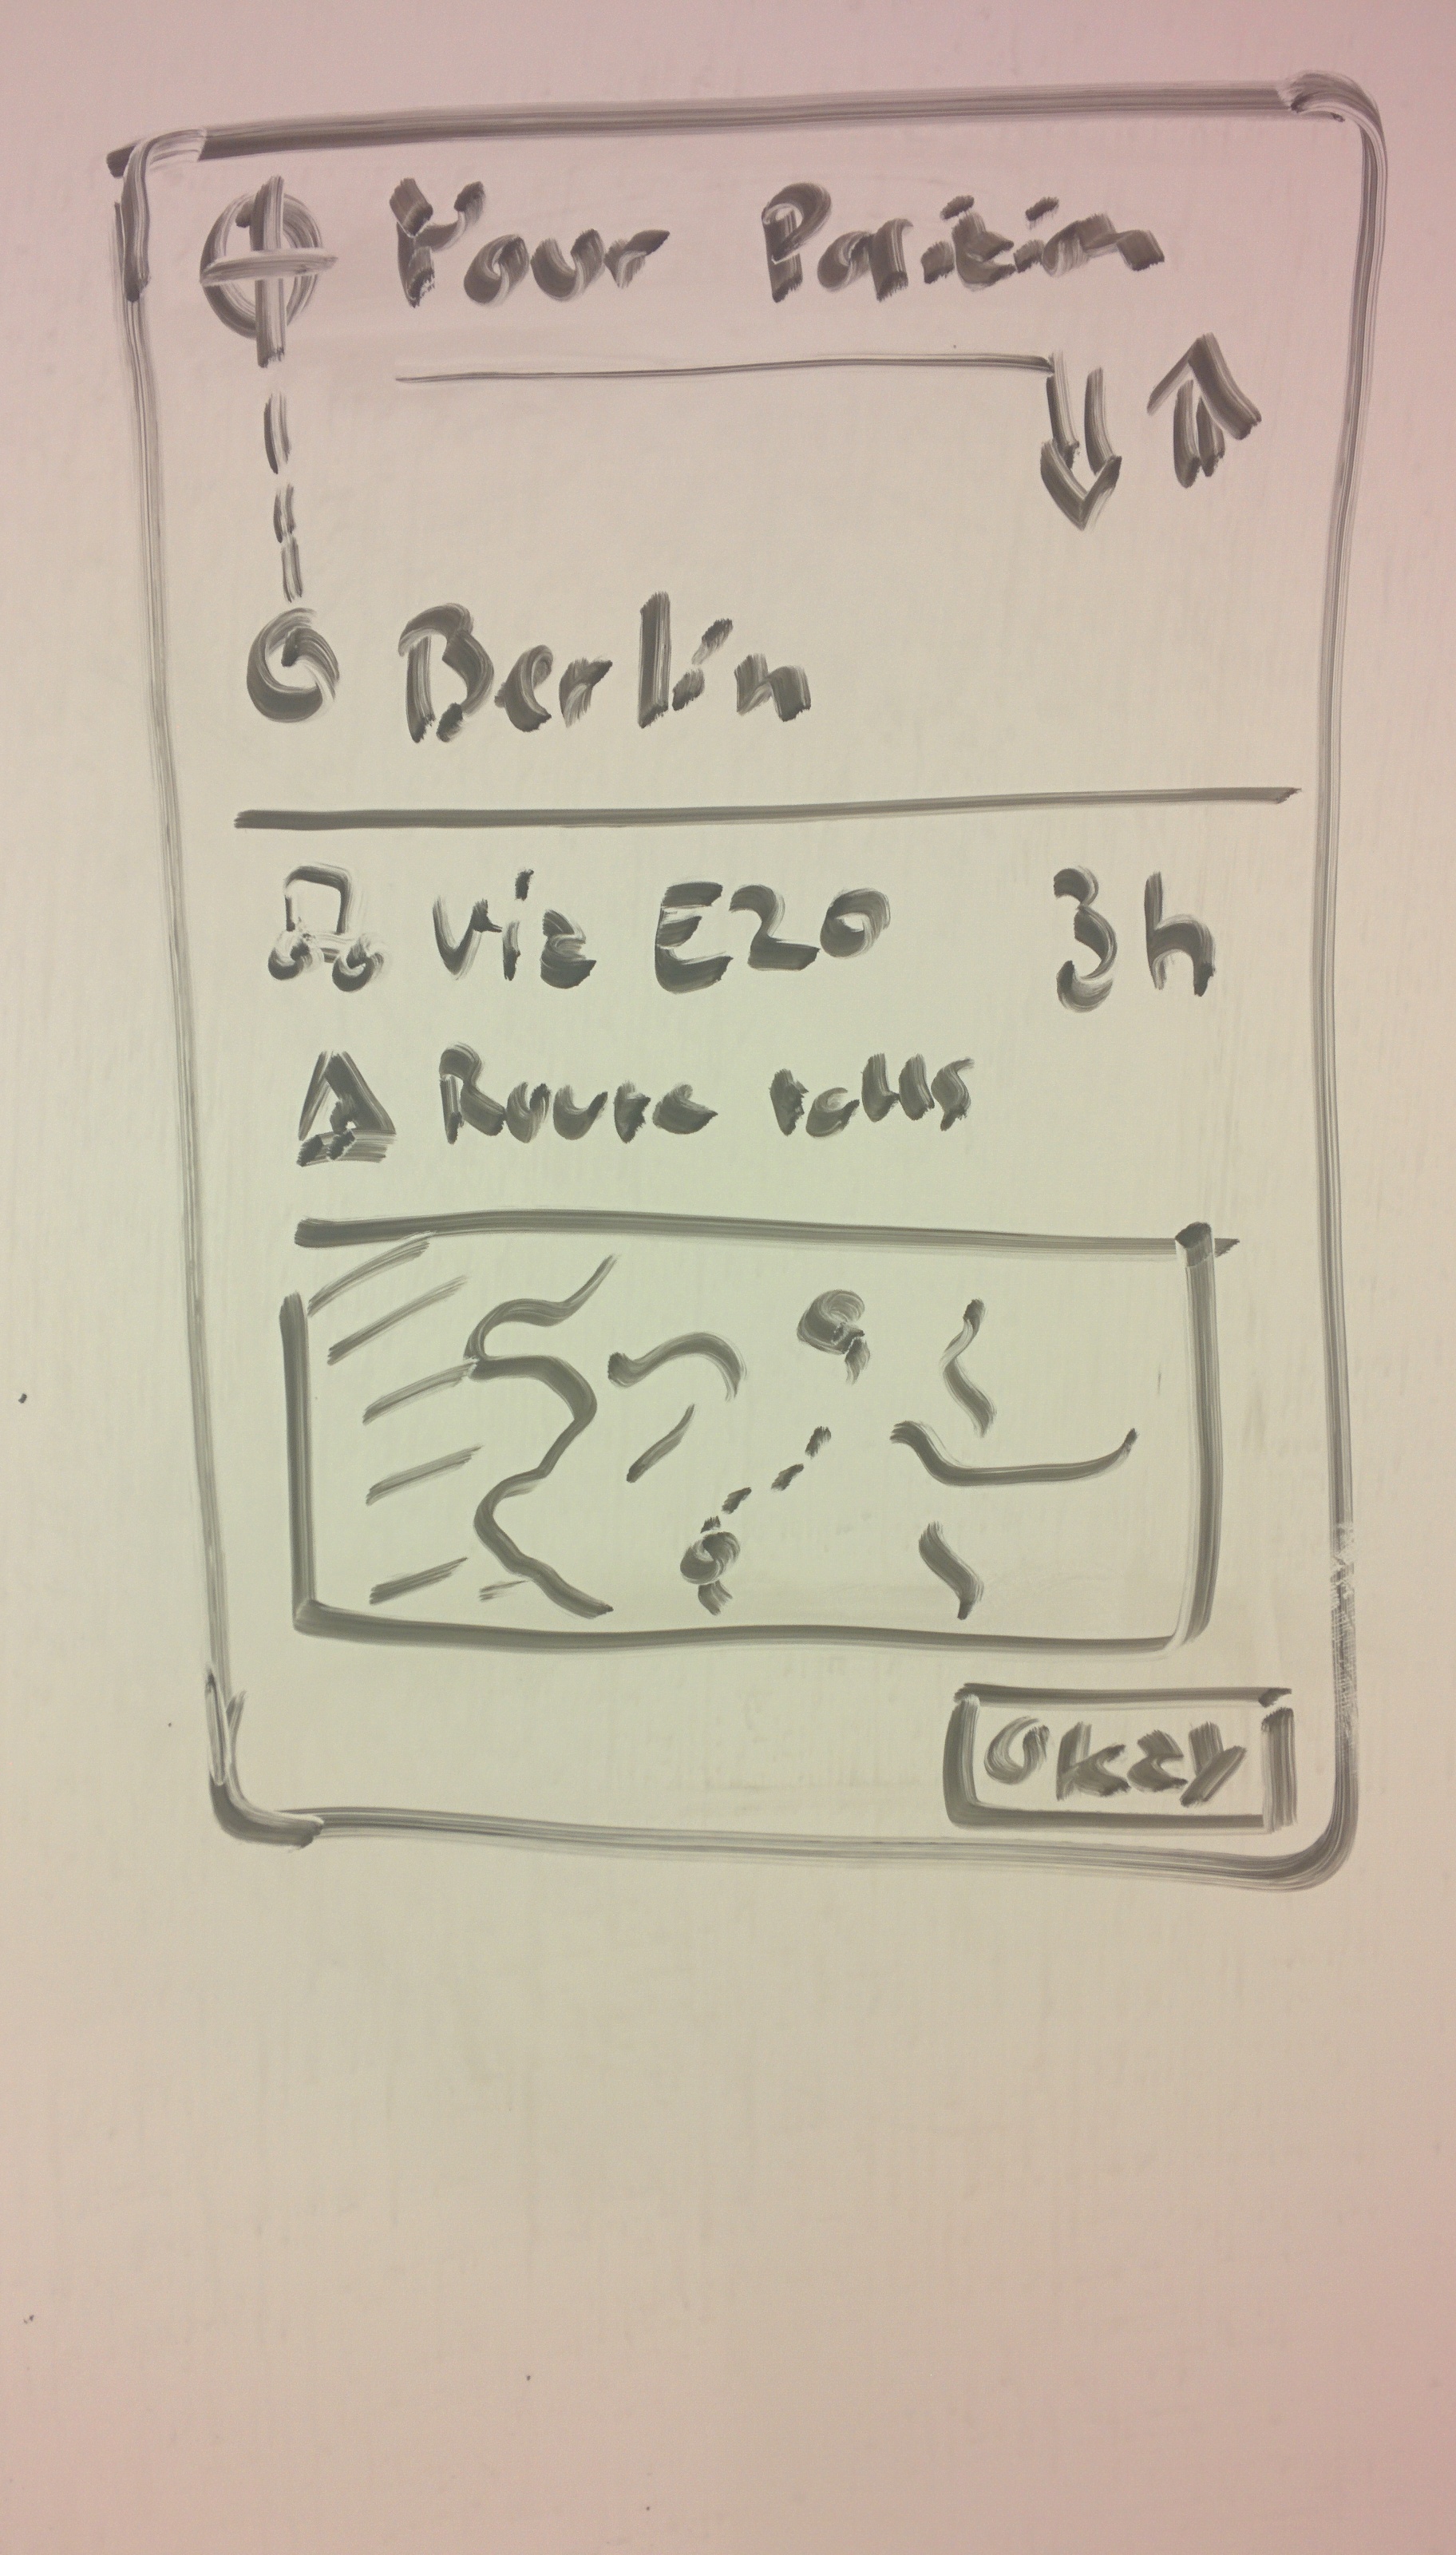 Your Position
Berlin
via E20 3h
Route tolls
Okay